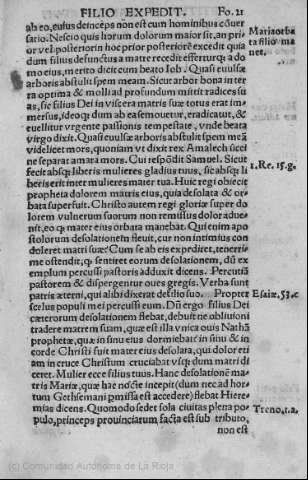 FILIO EXPEDIT. Fo. 21
ab eo, euius deinceps non est cum hominibus cõuer
satio. Nescio quis horum dolorum maior sit, an pri
or vel posterior: hoc prior posteriorẽ excedit quia
dum filius defunctus a matre recedit effertur q; a do
mo eius, merito dicit cum beato Iob. Quasi euulsæ
arboris abstulit spem meam. Sicut arbor bona inter
ra optima & molli ad profundum mittit radices su
as, sic filius Dei in viscera matris suæ totus erat im
mersus, ideoq; dum ab ea remouetur, eradicatur, &
euellitur vrgente passionis tempestate, vnde beata
virgo dixit. Quasi euulsæ arboris abstulit spem meã
videlicet mors, quoniam vt dixit rex Amalech sicci
ne separat amara mors. Cui respõdit Samuel. Sicut
fecit absq; liberis mulieres gladius tuus, sic absq; li
beris erit inter mulieres mater tua. Huic regi obiecit
propheta dolorem matris eius, quia desolata & or-
bata superfuit. Christo autem regi gloriæ super do
lorem vulnerum suorum non remissus dolor adue-
nit, eo q; mater eius orbata manebat. Qui enim apo
stolorum desolationem fleuit, cur non intimius con
doleret matri suæ? Cum se ab eis expediret, tenerri-
me ostendit, q; sentiret eorum desolationem, dũ ex
emplum percussi pastoris adduxit dicens. Percutiã
pastorem & dispergentur oues gregis. Verba sunt
patris æterni, qui alibi dixerat de filio suo. Propter
scelus populi mei percussi eum. Dũ ergo filius Dei
cæterorum desolationem flebat, debuit ne obliuioni
tradere matrem suam, quæ est illa vnica ouis Nathã
prophetæ, quæ in sinu eius dormiebat? in sinu & in
corde Christi fuit mater eius desolata, qui dolor eti
am in cruce Christum cruciabat vsq; dum matri di
ceret. Mulier ecce filius tuus. Hanc desolationẽ ma-
tris Mariæ, quæ hac nocte incepit (dum nec ad hor-
tum Gethsemani pmissa est accedere) flebat Hiere-
mias dicens. Quomodo sedet sola ciuitas plena po-
pulo, princeps prouinciarum facta est sub tributo,
non est
Maria orba
ta filio ma
net.
1. Re. 15. g.
Esaiæ, 53. c
Treno. 1. a.
(c) Comunidad Autónoma de La Rioja